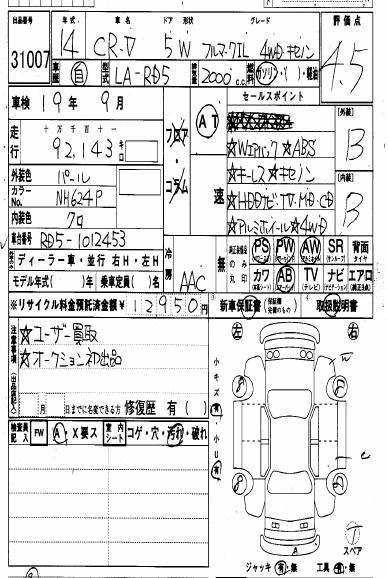 出品番号 年式 車名 ドア 形状 グレード 評価点
31007 14 CR-V 5 W フルマークiL 4WDキセノン 4.5
車歴 自 型式 LA-RD5 排気量 2000 c.c. 燃料 ガソリン・( )・軽油
車検 19年 9月 セールスポイント
走行 十万千百十一 92,143 キロ
フロア・コラム AT 速
☆Wエアバック ☆ABS
☆キーレス ☆キセノン
☆HDDナビ・TV・MD・CD
☆アルミホイール ☆4WD
[外装] B
[内装] B
外装色 パール
カラーNo. NH624P
内装色 クロ
車台番号 RD5-1012453
ディーラー車・並行 右H・左H
モデル年式( )年 乗車定員( )名
冷房 AAC
無 純正装備品のみ丸印 PS PW AW SR 背面タイヤ
カワ AB TV ナビ エアロ
※リサイクル料金預託済金額 ¥12950円 新車保証書 取扱説明書
注意事項(出品店記入)
☆ユーザー買取
☆オークション初出品
月 日までに名変できる方 修復歴 有( )
検査員記入 FW A・X要ス 室内シート コゲ・穴・汚れ・破れ
小キズ有 小U有
左 右
W
e
A
T スペア
ジャッキ 有・無 工具 有・無